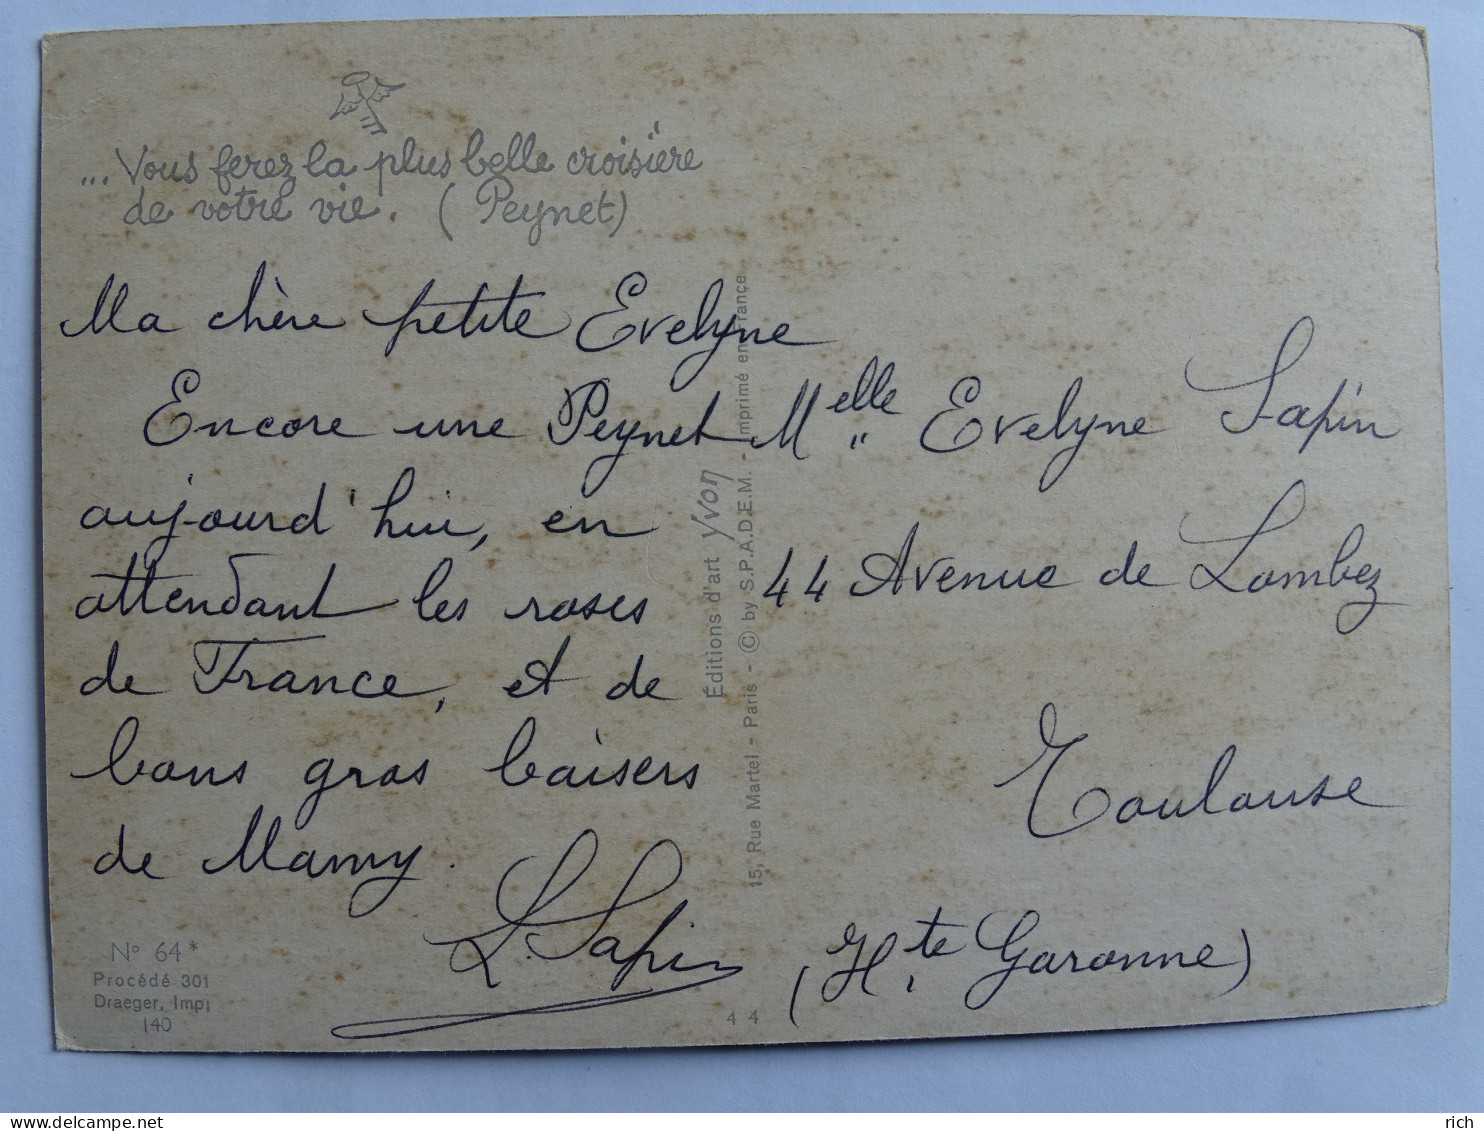 ... Vous ferez la plus belle croisière
de votre vie. (Peynet)
Ma chère petite Evelyne
Encore une Peynet
aujourd'hui, en
attendant les roses
de France, et de
bons gros baisers
de Mamy.
L. Sapin
N° 64*
Procédé 301
Draeger, Imp.
140
Éditions d'art Yvon
15, Rue Martel - Paris - © by S.P.A.D.E.M. - Imprimé en France
44
Melle Evelyne Sapin
44 Avenue de Lombez
Toulouse
(Hte Garonne)
www.delcampe.net
rich